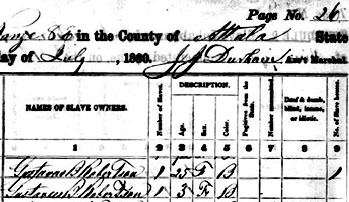 Page No. 26
Range 8 E in the County of Attala State
day of July, 1860. J J Durham Ass't Marshal.
DESCRIPTION.
NAMES OF SLAVE OWNERS. Number of Slaves. Age. Sex. Color. Fugitives from the State. Number manumitted. Deaf & dumb, blind, insane, or idiotic.
1 2 3 4 5 6 7 8 9
Gustavus B Robertson 1 25 F B 1
Gustavus B Robertson 1 3 F B